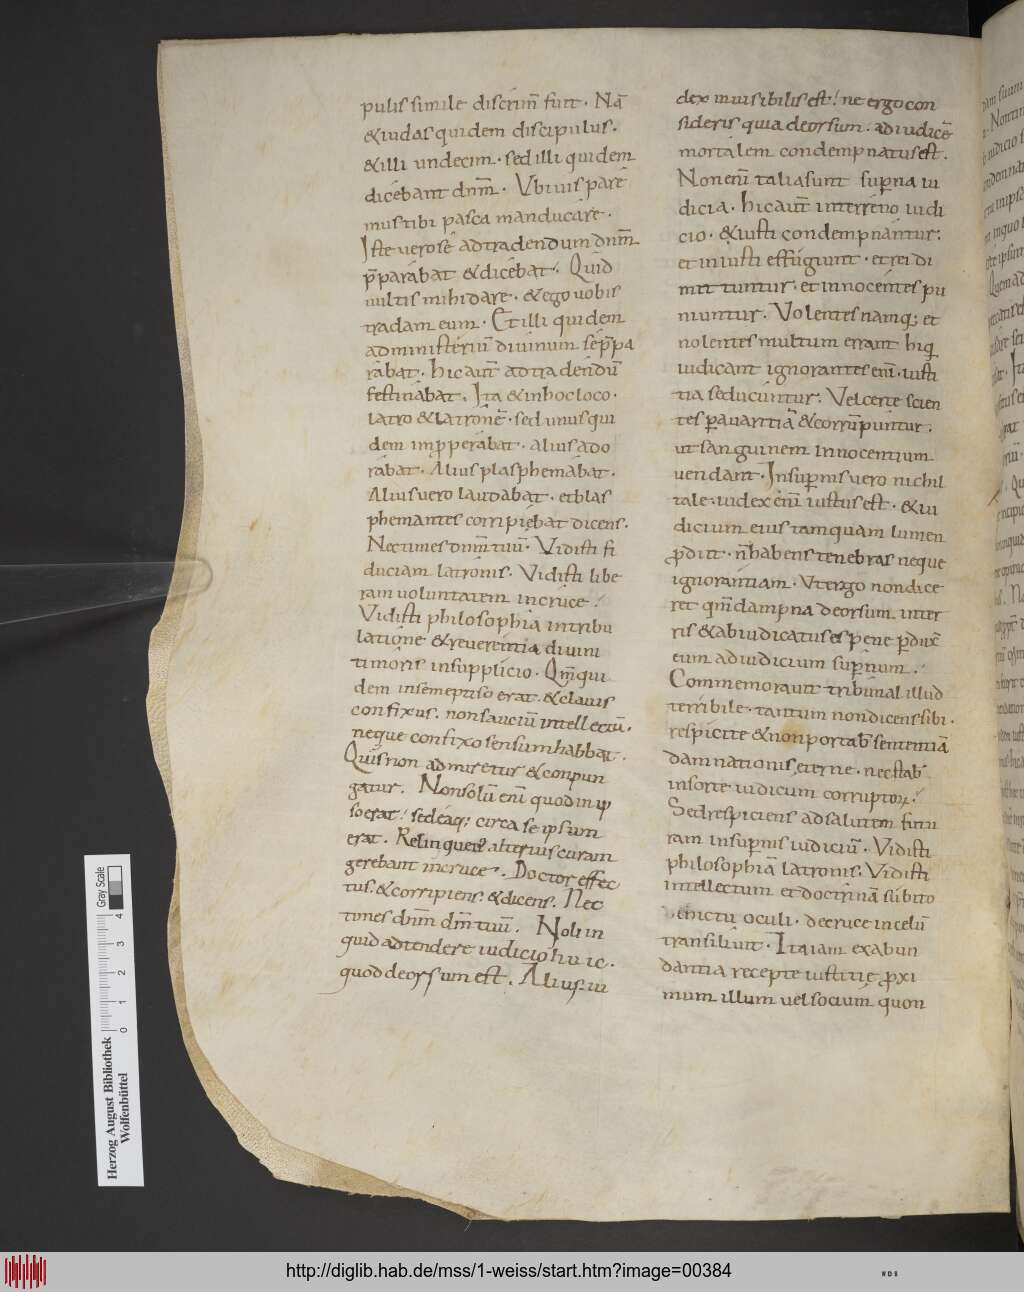 pulis simile discrim̄ fuit. Nā
&iudas quidem discipulus.
&illi undecim. sed illi quidem
dicebant dnm̄. Vbi uis pare
mus tibi pasca manducare.
Iste uero se ad tradendum dnm̄
p̄parabat & dicebat. Quid
uultis mihi dare. & ego uobis
tradam eum. Et illi quidem
administeriū diuinum se p̄pa
rabat. hic aut̄ ad tradendū
festinabat. Ita & in hoc loco.
latro & latrone. sed unus qui
dem improperabat. alius ado
rabat. Alius plasphemabat.
Alius uero laudabat. et blas
phemantes corripiebat dicens.
Nec times dnm̄ tuū. Vidisti fi
duciam latronis. Vidisti libe
ram uoluntatem in cruce.
Vidisti philosophia in tribu
latione & reuerentia diuini
timoris in supplicio. Qm̄ qui
dem in semeptiso erat. & clauis
confixus. non sauciū intellectū.
neque confixo sensum habbat.
Quis non admiretur & conpun
gatur. Non solū eni quod in ip
so erat. sed ea q; circa se ipsum
erat. Relinquens alterius curam
gerebant in cruce. Doctor effec
tus. & corripiens. & dicens. Nec
times dnm̄ dm̄ tuū. Noli in
quid adtendere iudicio huic.
quod deorsum est. Alius iu
dex inuisibilis est. ne ergo con
sideris quia deorsum. ad iudicē
mortalem condempnatus est.
Non enī talia sunt superna iu
dicia. hic aut̄ interreno iudi
cio. & iusti condempnantur.
et iniusti effugiunt. et rei di
mittuntur. et innocentes pu
niuntur. Volentes namq; et
nolentes multum errant hiq
iudicant ignorantes enī. iusti
tia seducuntur. Vel certe scien
tes p auaritiā & corrūpuntur.
ut sanguinem innocentium
uendant. In supernis uero nichil
tale. iudex enī iustus est. & iu
dicium eius tamquam lumen
prodiit. n̄ habens tenebras neque
ignorantiam. Vt ergo non dice
ret qm̄ dampna deorsum inter
ris & abiudicatus es pene perdux̄
eum ad iudicium supernum.
Commemorauit tribunal illud
terribile. tantum non dicens sibi.
respicite & non portab sententiā
damnationis eterne. nec stab
in sorte iudicum corruptorꝝ.
Sed respiciens ad salutem futu
ram in supernis iudiciū. Vidisti
philosophiā latronis. Vidisti
intellectum et doctrinā subito
oculi. de cruce in celū
transiliuit. Ita iam ex abun
dantia recepte iustitie proxi
mum illum uel socium quon
Gray Scale
0 1 2 3 4
Herzog August Bibliothek
Wolfenbüttel
http://diglib.hab.de/mss/1-weiss/start.htm?image=00384